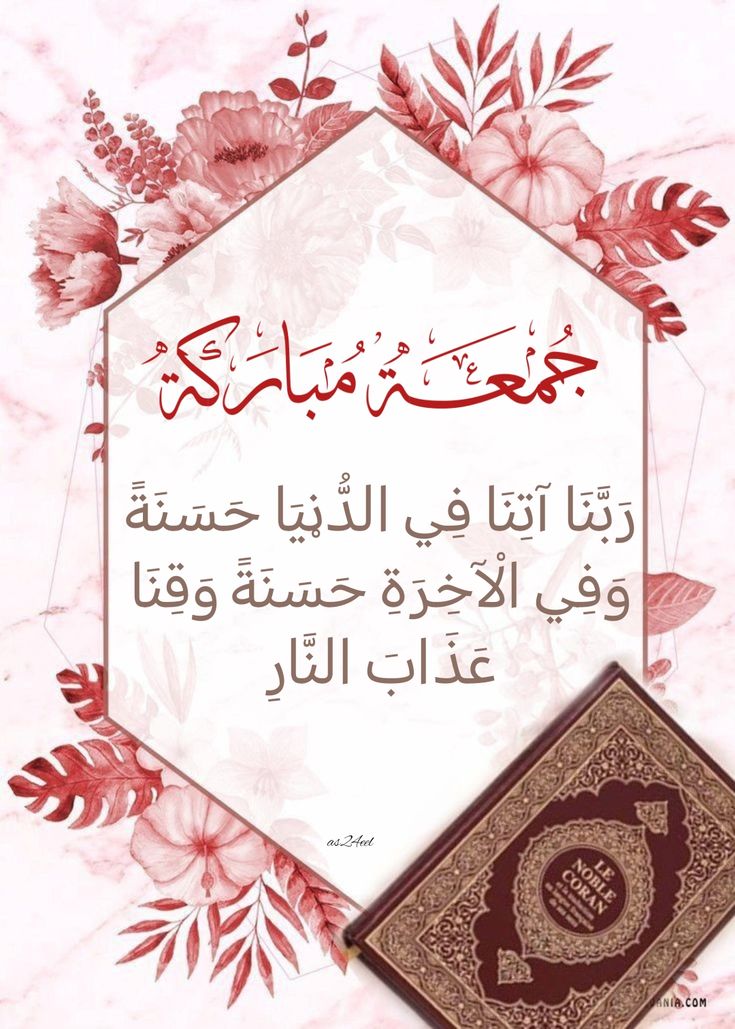 جُمْعَةُ مُبَارَكَةُ
رَبَّنَا آتِنَا فِي الدُّنْيَا حَسَنَةً
وَفِي الْآخِرَةِ حَسَنَةً وَقِنَا
عَذَابَ النَّارِ
as24eel
LE
NOBLE
CORAN
ANIA.COM